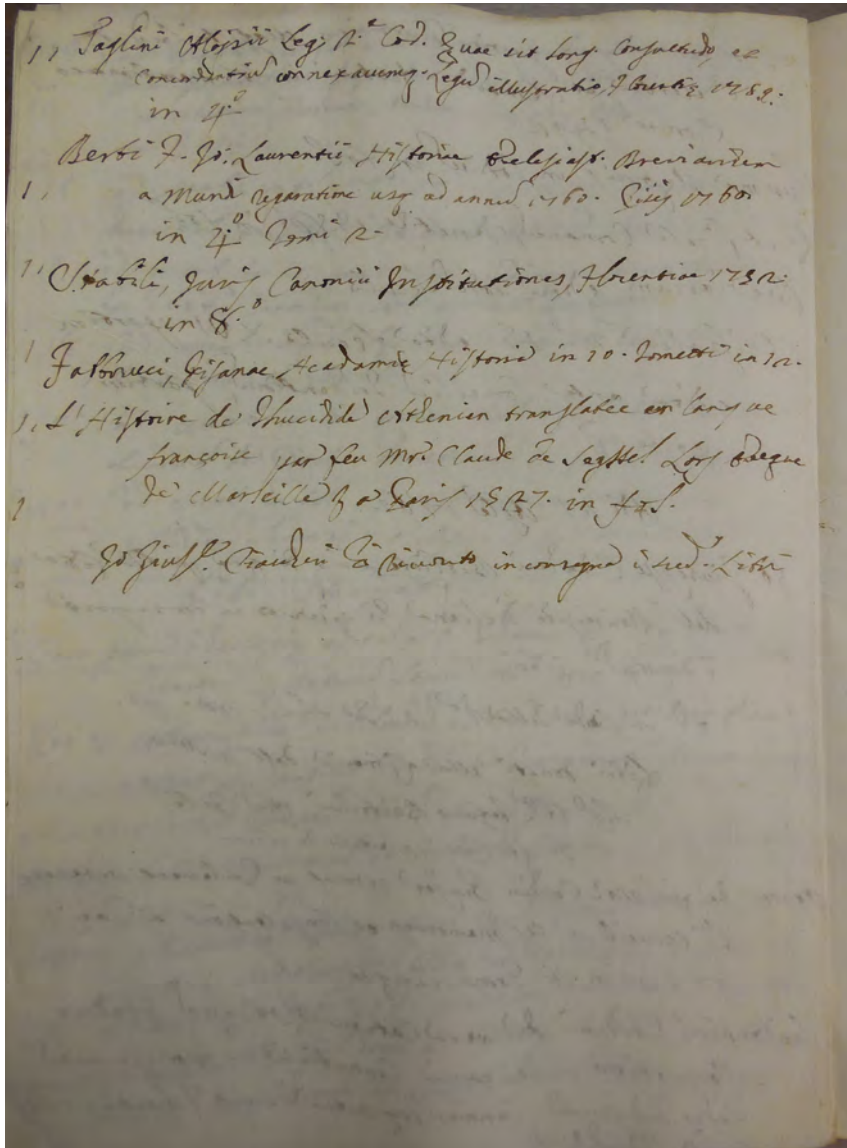 1, Paglini Aloysii Leg. 2.ª Cod. Quae sit Long. Consuetudo, et
connexarumq. Legū illustratio, Florentię 1752.
in 4.º
Berti F. Jo. Laurentii Historiae Ecclesiast. Breviarium
1, a Mundi reparatione usq. ad annū 1760. Pisis 1760
in 4.º Tomi 2.
1, Stabili, Juris Canonici Institutiones, Florentiae 1732.
in 8.º
1 Fabbrucci, Pisanae Academię Historia in 10. Tometti in 12.
1, L'Histoire de Thucidide Athenien translatée en langue
françoise par feu Mr. Claude de Seyssel Lors Evegue
1 de Marseille & a Paris 1527. in fol.
Io Gius.e ho ricevuto in consegna i sud.i Libri